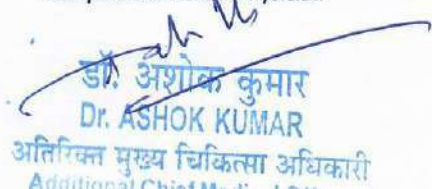 डॉ. अशोक कुमार
Dr. ASHOK KUMAR
अतिरिक्त मुख्य चिकित्सा अधिकारी
Additional Chief Medical